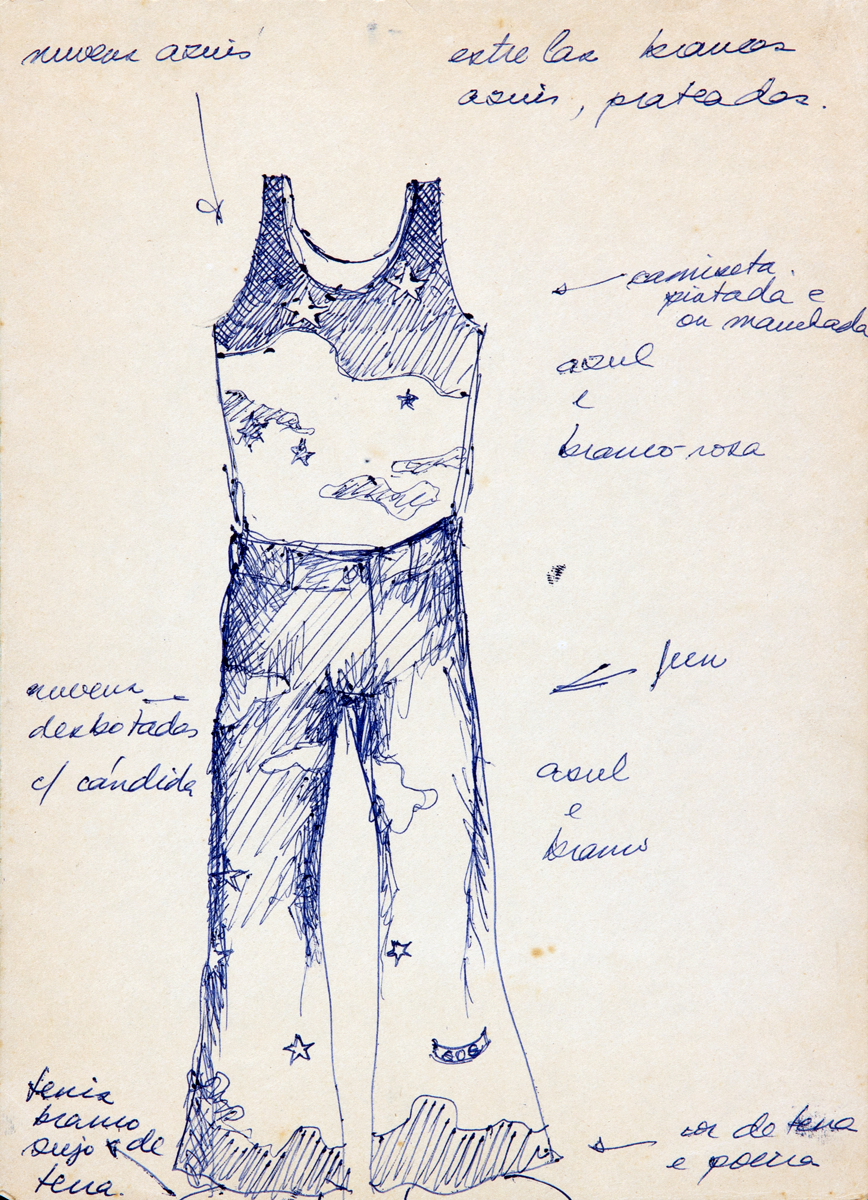 nuvens azuis
estrelas brancas
azuis, prateadas.
camiseta
pintada e
ou manchada
azul
e
branco-rosa
jeen
nuvens
desbotadas
c/ cándida
azul
e
branco
SOS
tenis
branco
sujo de
terra.
cor de terra
e poeira